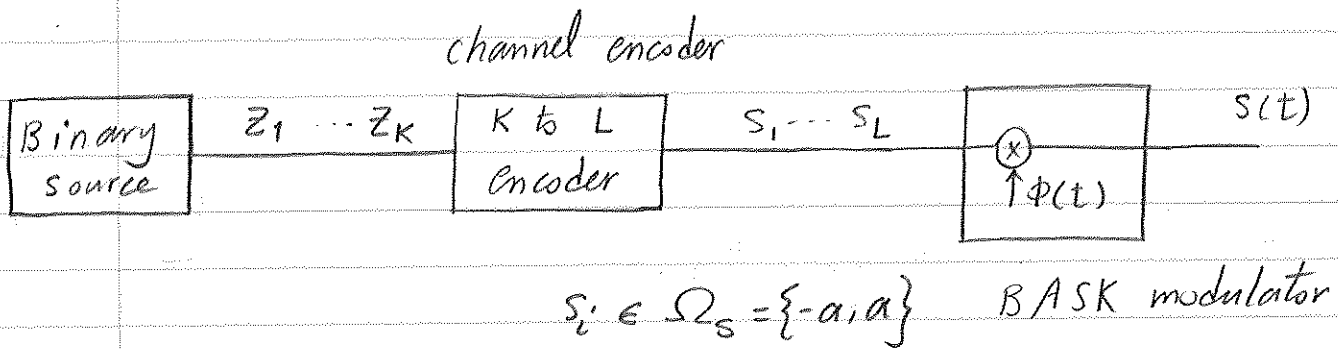 channel encoder
Binary source
Z₁ ... Z_K
K to L encoder
S₁ ... S_L
x
↑ Φ(t)
S(t)
S_i ∈ Ω_s = {-a, a} BASK modulator